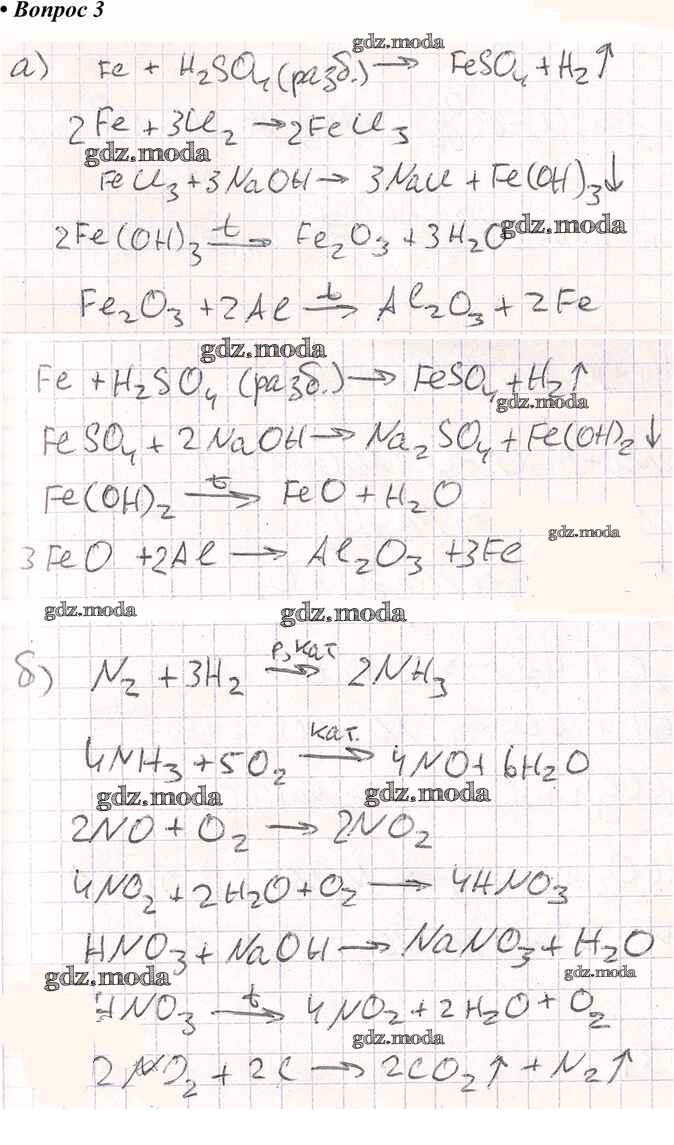 • Вопрос 3
gdz.moda
а) Fe + H₂SO₄ (разб.) → FeSO₄ + H₂↑
2Fe + 3Cl₂ → 2FeCl₃
gdz.moda
FeCl₃ + 3NaOH → 3NaCl + Fe(OH)₃↓
2Fe(OH)₃ =t→ Fe₂O₃ + 3H₂O gdz.moda
Fe₂O₃ + 2Al =t→ Al₂O₃ + 2Fe
gdz.moda
Fe + H₂SO₄ (разб.) → FeSO₄ + H₂↑
gdz.moda
FeSO₄ + 2NaOH → Na₂SO₄ + Fe(OH)₂↓
Fe(OH)₂ =t→ FeO + H₂O
gdz.moda
3FeO + 2Al → Al₂O₃ + 3Fe
gdz.moda gdz.moda
б) N₂ + 3H₂ p,кат→ 2NH₃
4NH₃ + 5O₂ кат.→ 4NO + 6H₂O
gdz.moda gdz.moda
2NO + O₂ → 2NO₂
4NO₂ + 2H₂O + O₂ → 4HNO₃
HNO₃ + NaOH → NaNO₃ + H₂O
gdz.moda gdz.moda
4HNO₃ t→ 4NO₂ + 2H₂O + O₂
gdz.moda
2NO₂ + 2C → 2CO₂↑ + N₂↑